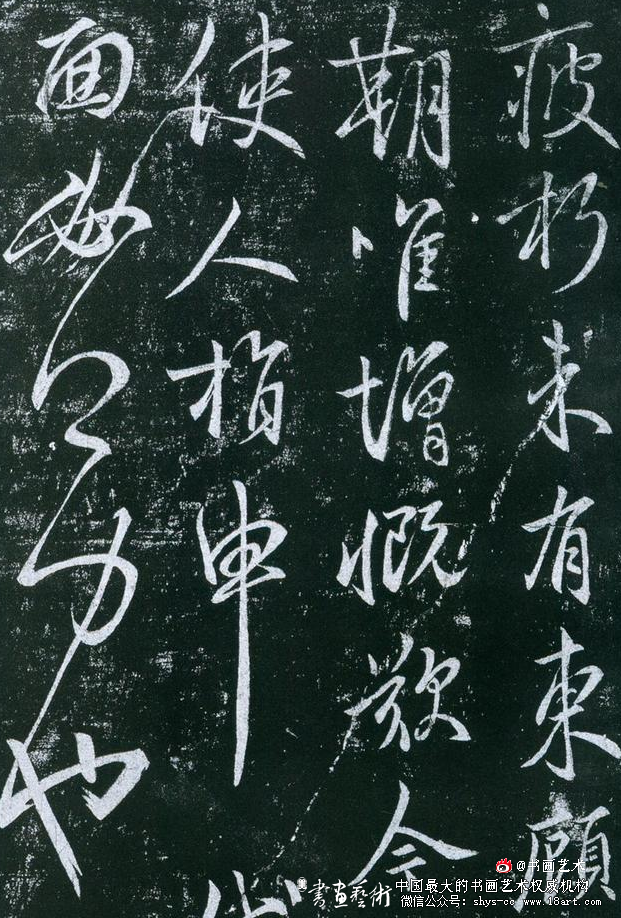 疲朽未有東顧
期唯增慨歎今
使人指申代
面也
@书画艺术
書畫藝術
中国最大的书画艺术权威机构
微信公众号：shys-cc www.18art.com